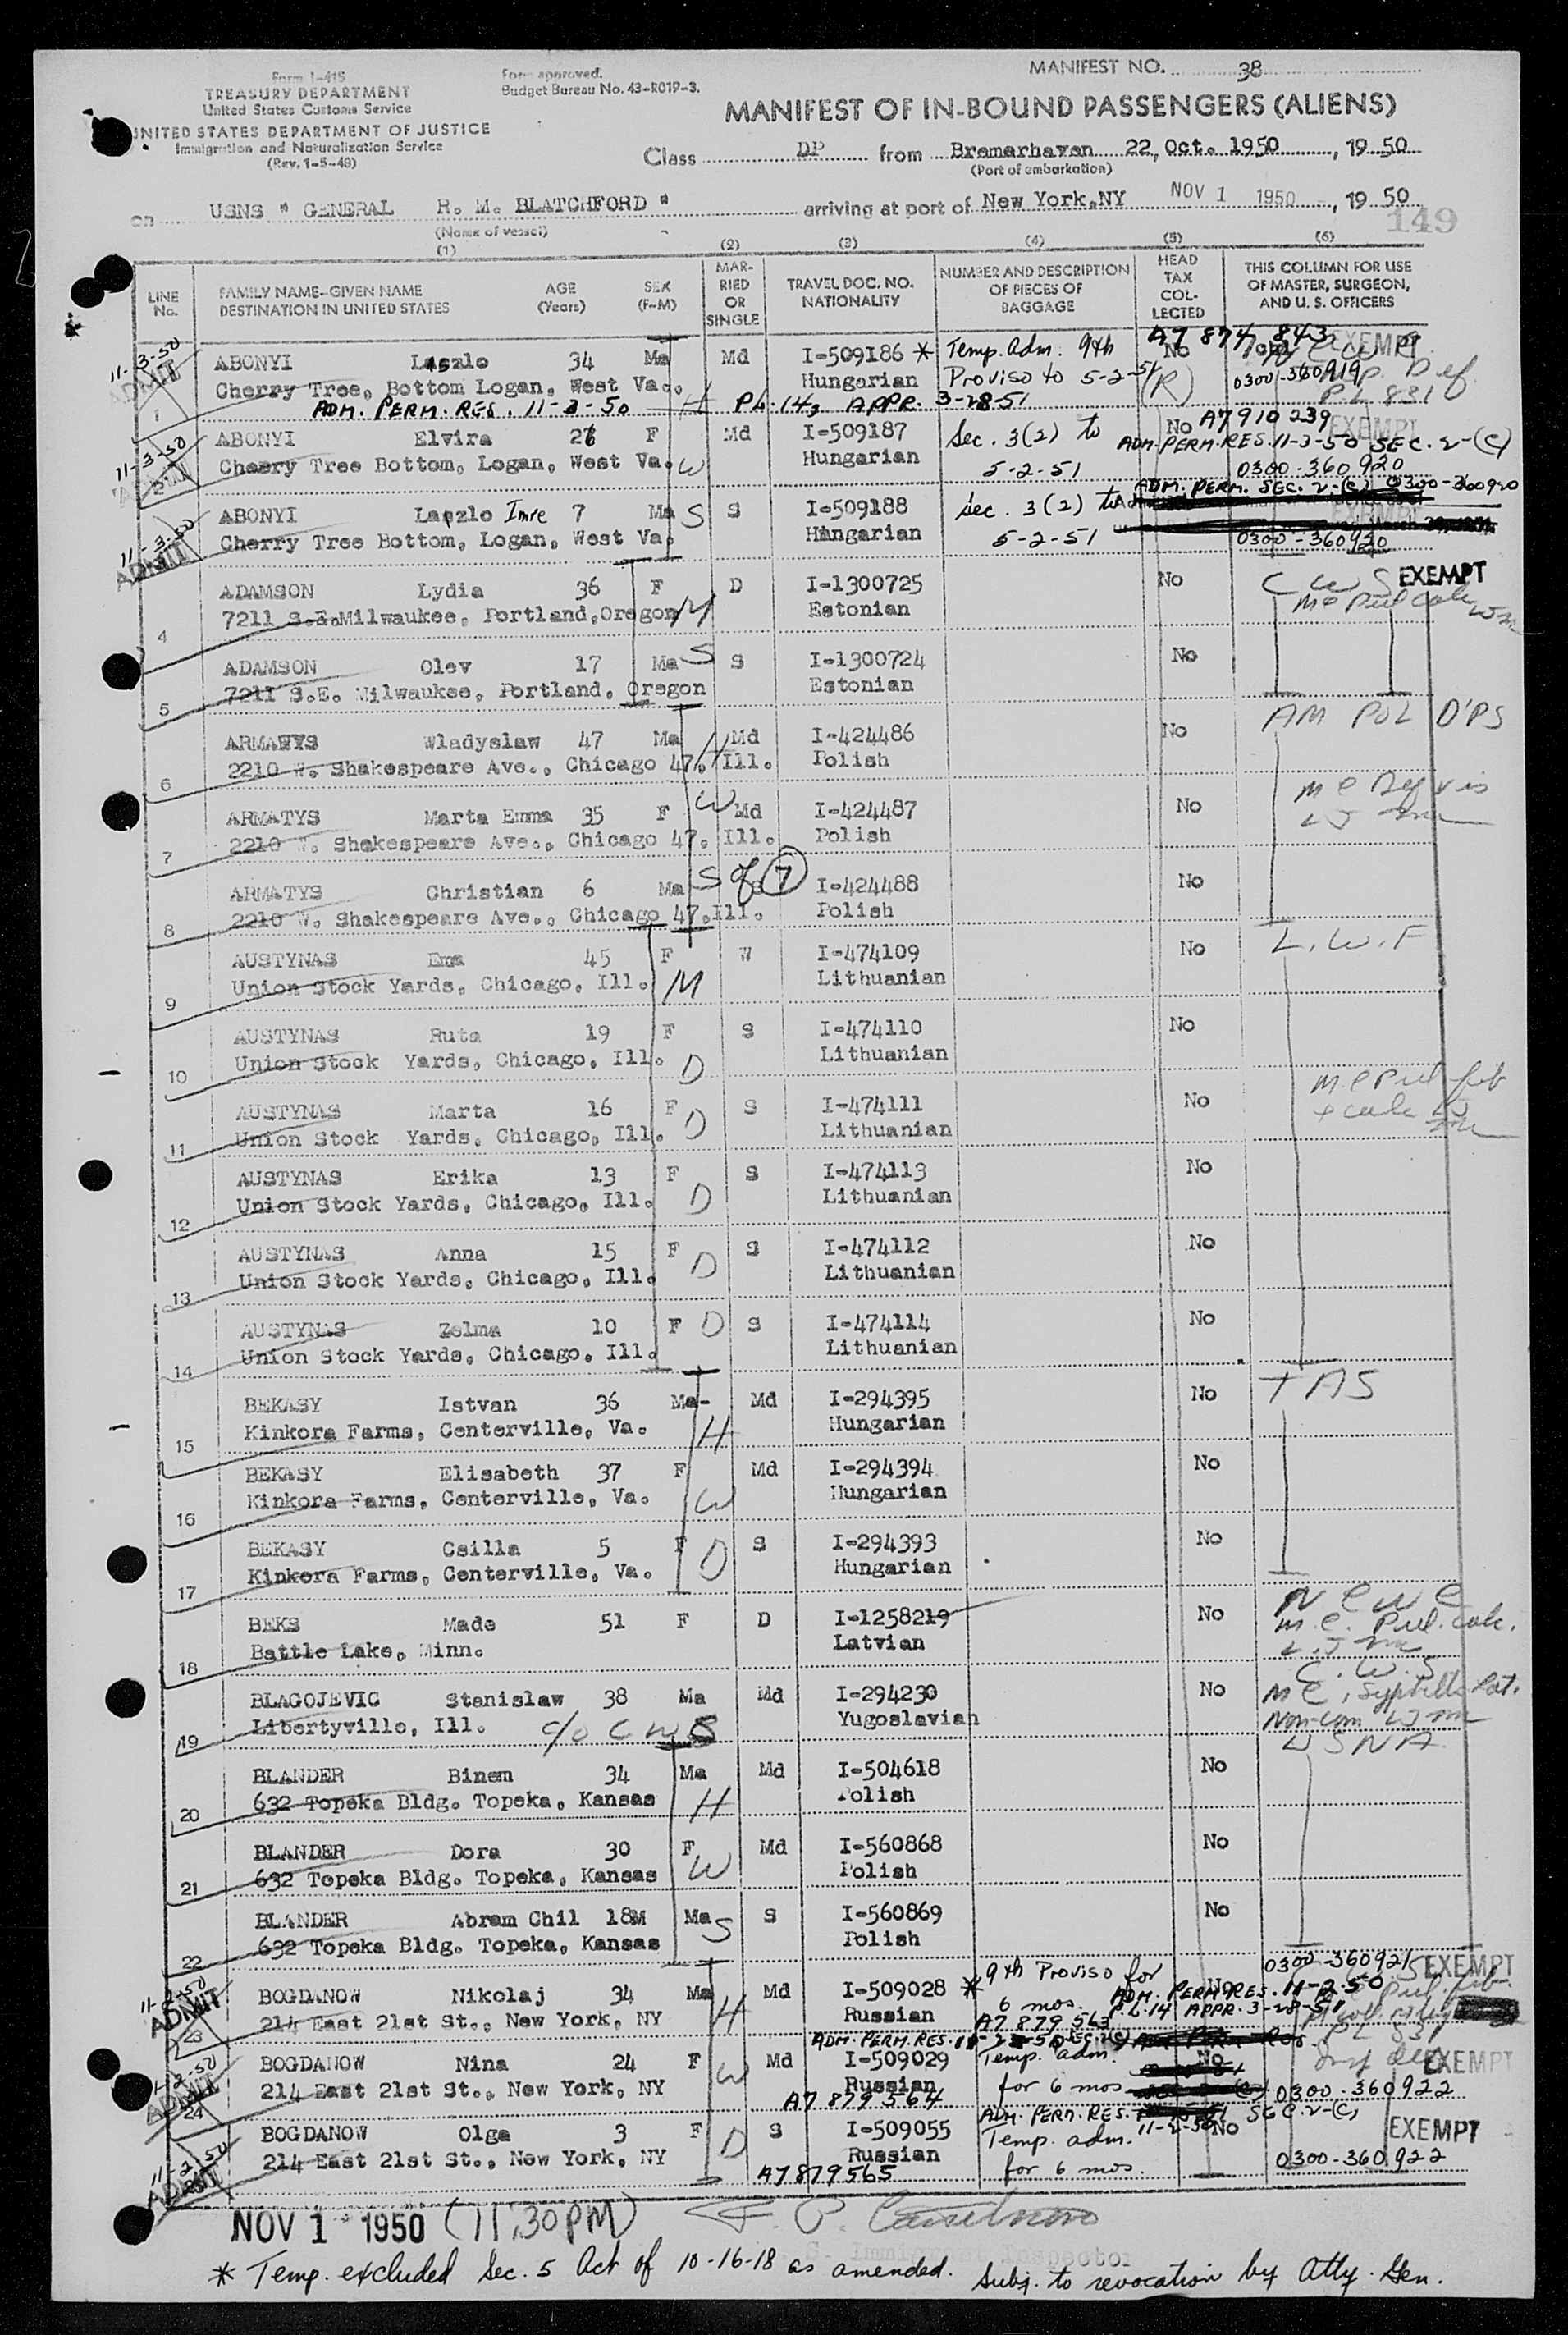 Form I-415
TREASURY DEPARTMENT
United States Customs Service
UNITED STATES DEPARTMENT OF JUSTICE
Immigration and Naturalization Service
(Rev. 1-5-49)
Form approved.
Budget Bureau No. 43-R019-3.
MANIFEST NO. 38
MANIFEST OF IN-BOUND PASSENGERS (ALIENS)
Class DP from Bremerhaven 22, Oct. 1950, 19 50
(Port of embarkation)
on USNS " GENERAL R. M. BLATCHFORD " arriving at port of New York,NY NOV 1 1950, 19 50
(Name of vessel)
149
(1) (2) (3) (4) (5) (6)
LINE No.
FAMILY NAME-GIVEN NAME AGE SEX
DESTINATION IN UNITED STATES (Years) (F-M)
MARRIED OR SINGLE
TRAVEL DOC. NO. NATIONALITY
NUMBER AND DESCRIPTION OF PIECES OF BAGGAGE
HEAD TAX COLLECTED
THIS COLUMN FOR USE OF MASTER, SURGEON, AND U. S. OFFICERS
11-3-50 ADMIT A7 874 843 EXEMPT
ABONYI Laszlo 34 Ma Md I-509186 * Temp. Adm. 9th No
1 Cherry Tree, Bottom Logan, West Va. H Hungarian Proviso to 5-2-51 (R) 0300-360919 PL 831
ADM. PERM. RES. 11-3-50 PL. 14, APPR. 3-28-51
11-3-50 ABONYI Elvira 26 F Md I-509187 Sec. 3(2) to No A7910 239 EXEMPT
ADM. PERM. RES. 11-3-50 SEC. 2-(C)
2 Cherry Tree Bottom, Logan, West Va. W Hungarian 5-2-51 0300-360920
ADM. PERM. SEC. 2-(C) 0300-360920
11-3-50 ADMIT ABONYI Laszlo Imre 7 Ma S S I-509188 Sec. 3(2) to EXEMPT
Cherry Tree Bottom, Logan, West Va. Hungarian 5-2-51 0300-360920
ADAMSON Lydia 36 F D I-1300725 No C W S EXEMPT
4 7211 S.E.Milwaukee, Portland,Oregon M Estonian
ADAMSON Olev 17 Ma S S I-1300724 No
5 7211 S.E. Milwaukee, Portland, Oregon Estonian
ARMATYS Wladyslaw 47 Ma H Md I-424486 No AM POL D'PS
6 2210 W. Shakespeare Ave., Chicago 47, Ill. Polish
ARMATYS Marta Emma 35 F W Md I-424487 No
7 2210 W. Shakespeare Ave., Chicago 47, Ill. Polish
ARMATYS Christian 6 Ma S of 7 S I-424488 No
8 2210 W. Shakespeare Ave., Chicago 47,Ill. Polish
AUSTYNAS Ema 45 F W I-474109 No L.W.F
9 Union Stock Yards, Chicago, Ill. M Lithuanian
AUSTYNAS Ruta 19 F S I-474110 No
10 Union Stock Yards, Chicago, Ill. D Lithuanian
AUSTYNAS Marta 16 F D S I-474111 No
11 Union Stock Yards, Chicago, Ill. Lithuanian
AUSTYNAS Erika 13 F S I-474113 No
12 Union Stock Yards, Chicago, Ill. D Lithuanian
AUSTYNAS Anna 15 F D S I-474112 No
13 Union Stock Yards, Chicago, Ill. Lithuanian
AUSTYNAS Zelma 10 F D S I-474114 No
14 Union Stock Yards, Chicago, Ill. Lithuanian
BEKASY Istvan 36 Ma- Md I-294395 No
15 Kinkora Farms, Centerville, Va. H Hungarian
BEKASY Elisabeth 37 F Md I-294394 No
16 Kinkora Farms, Centerville, Va. W Hungarian
BEKASY Csilla 5 F D S I-294393 No
17 Kinkora Farms, Centerville, Va. Hungarian
BEKS Made 51 F D I-1258219 No
18 Battle Lake, Minn. Latvian
C.W.S
BLAGOJEVIC Stanislaw 38 Ma Md I-294230 No
19 Libertyville, Ill. c/o C W S Yugoslavian
BLANDER Binem 34 Ma Md I-504618 No USNA
20 632 Topeka Bldg. Topeka, Kansas H Polish
BLANDER Dora 30 F Md I-560868 No
21 632 Topeka Bldg. Topeka, Kansas W Polish
BLANDER Abram Chil 18M Ma S S I-560869 No
22 632 Topeka Bldg. Topeka, Kansas Polish
11-2-50 ADMIT 0300-360921 EXEMPT
BOGDANOW Nikolaj 34 Ma Md I-509028 * 9th Proviso for No ADM. PERM RES. 11-2-50
23 214 East 21st St., New York, NY H Russian 6 mos. P.L. 14 APPR. 3-28-51
A7 879 563 PL 831
ADM. PERM. RES.
11-2-50 ADMIT BOGDANOW Nina 24 F W Md I-509029 Temp. adm. No EXEMPT
24 214 East 21st St., New York, NY Russian for 6 mos 0300-360922
A7 879 564 ADM. PERM. RES. 11-2-50 SEC. 2-(C)
11-2-50 ADMIT BOGDANOW Olga 3 F D S I-509055 Temp. adm. No EXEMPT
25 214 East 21st St., New York, NY Russian for 6 mos. 0300-360922
A7879565
NOV 1 1950 (11:30PM)
Immigrant Inspector
* Temp. excluded Sec. 5 Act of 10-16-18 as amended. Subj. to revocation by Atty. Gen.